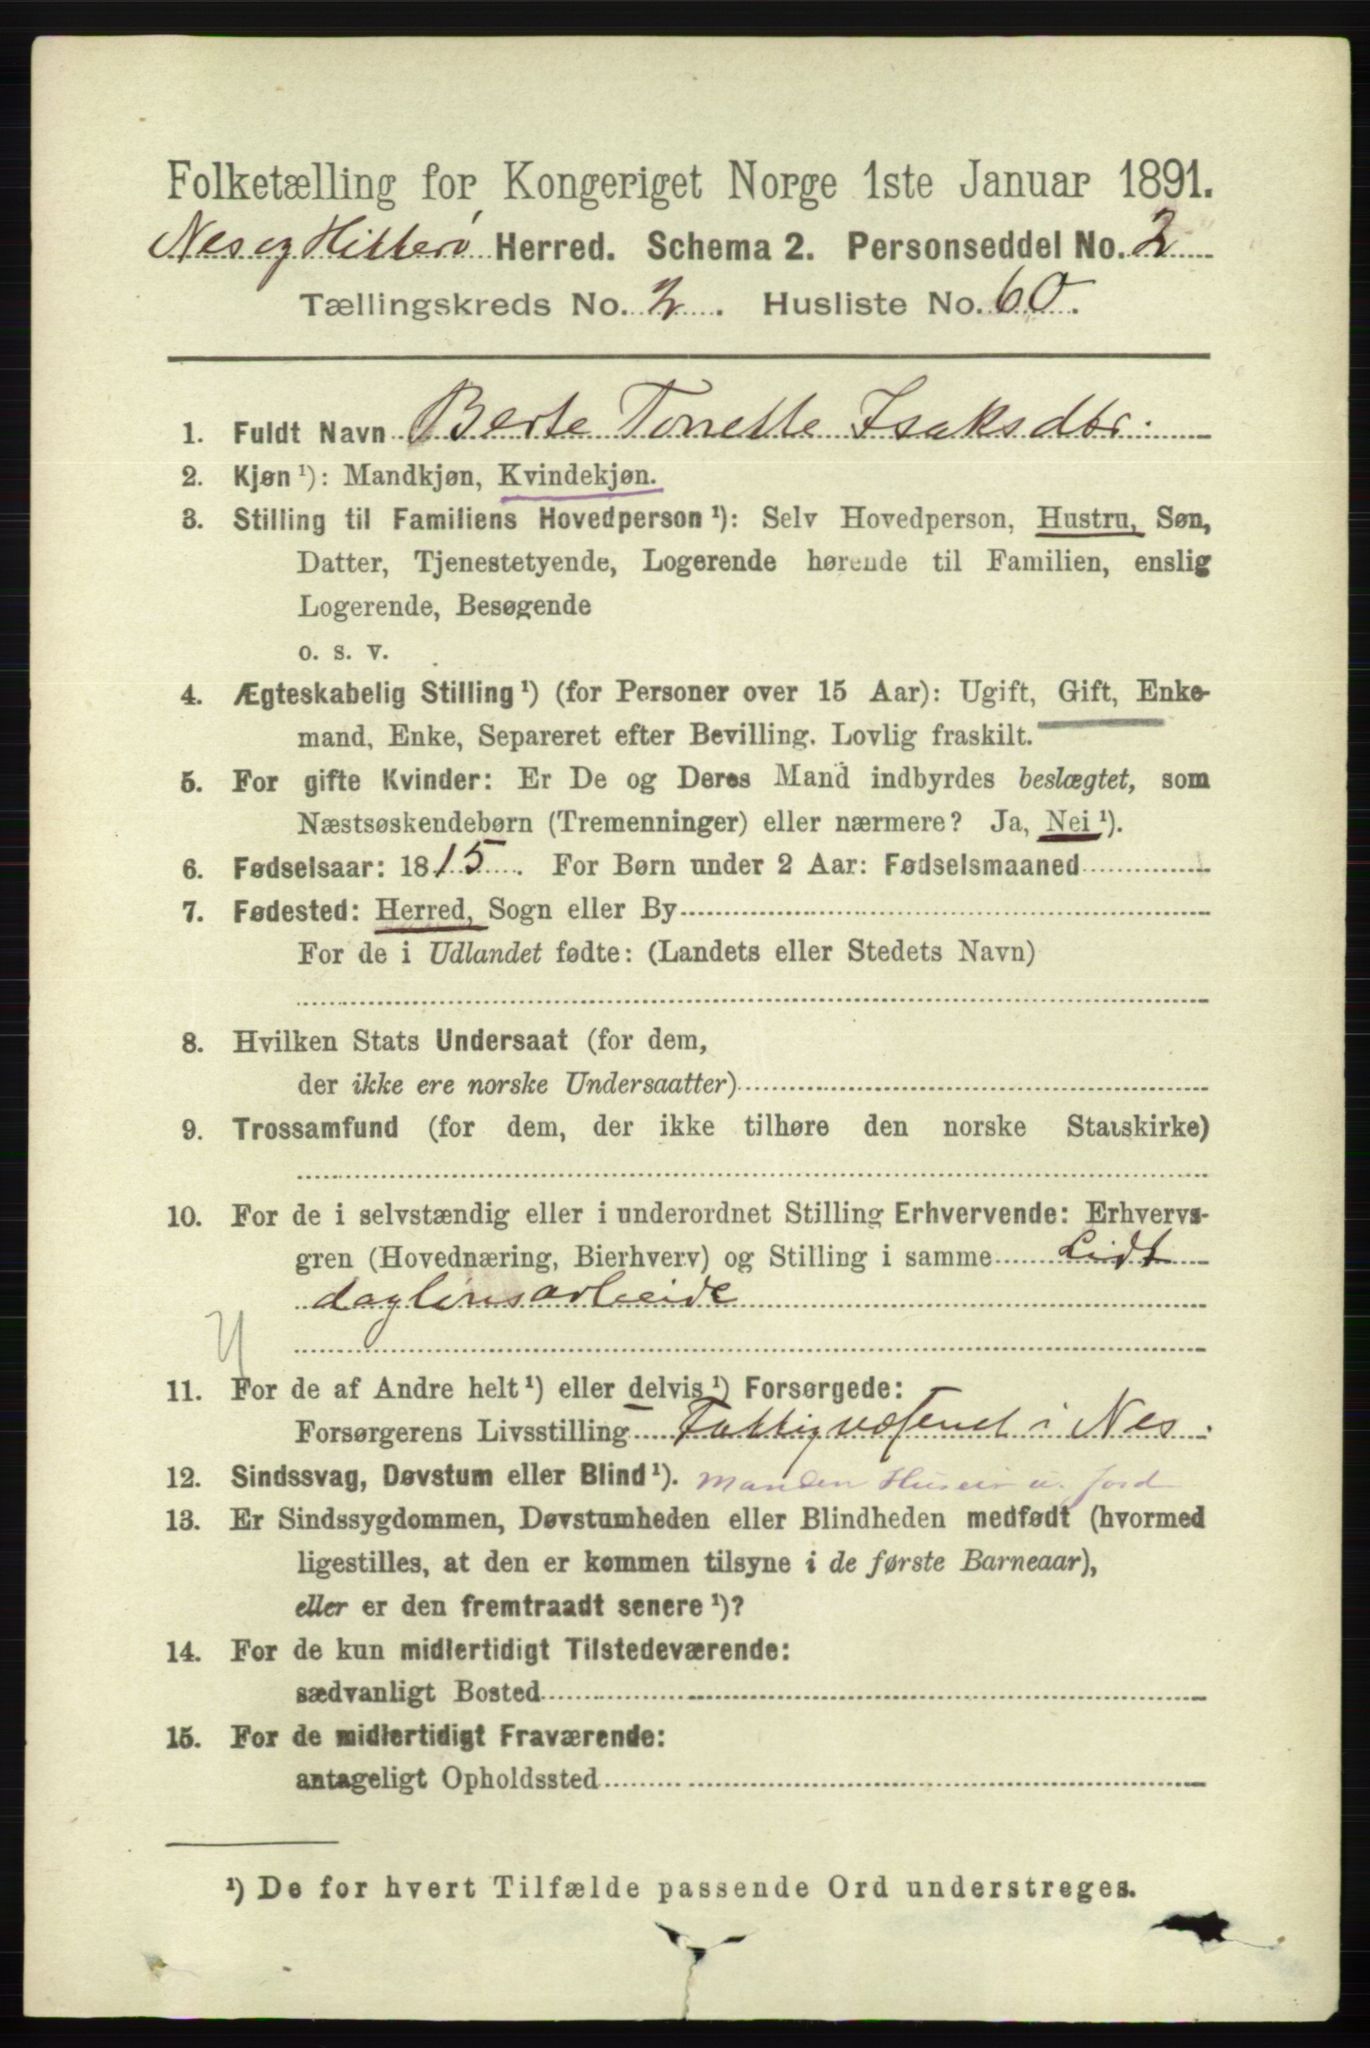 Folketælling for Kongeriget Norge 1ste Januar 1891.
Nes og Hitterø Herred. Schema 2. Personseddel No. 2
Tællingskreds No. 2. Husliste No. 60.
1. Fuldt Navn Berte Tonette Isaksdtr.
2. Kjøn ¹): Mandkjøn, Kvindekjøn.
3. Stilling til Familiens Hovedperson ¹): Selv Hovedperson, Hustru, Søn,
Datter, Tjenestetyende, Logerende hørende til Familien, enslig
Logerende, Besøgende
o. s. v.
4. Ægteskabelig Stilling ¹) (for Personer over 15 Aar): Ugift, Gift, Enke-
mand, Enke, Separeret efter Bevilling. Lovlig fraskilt.
5. For gifte Kvinder: Er De og Deres Mand indbyrdes beslægtet, som
Næstsøskendebørn (Tremenninger) eller nærmere? Ja, Nei ¹).
6. Fødselsaar: 1815. For Børn under 2 Aar: Fødselsmaaned
7. Fødested: Herred, Sogn eller By
For de i Udlandet fødte: (Landets eller Stedets Navn)
8. Hvilken Stats Undersaat (for dem,
der ikke ere norske Undersaatter)
9. Trossamfund (for dem, der ikke tilhøre den norske Statskirke)
10. For de i selvstændig eller i underordnet Stilling Erhvervende: Erhvervs-
gren (Hovednæring, Bierhverv) og Stilling i samme Lidt
daglønsarbeide
11. For de af Andre helt ¹) eller delvis ¹) Forsørgede:
Forsørgerens Livsstilling Fattigvæsenet i Nes.
12. Sindssvag, Døvstum eller Blind ¹). Manden Huseier u. Jord
13. Er Sindssygdommen, Døvstumheden eller Blindheden medfødt (hvormed
ligestilles, at den er kommen tilsyne i de første Barneaar),
eller er den fremtraadt senere ¹)?
14. For de kun midlertidigt Tilstedeværende:
sædvanligt Bosted
15. For de midlertidigt Fraværende:
antageligt Opholdssted
¹) De for hvert Tilfælde passende Ord understreges.